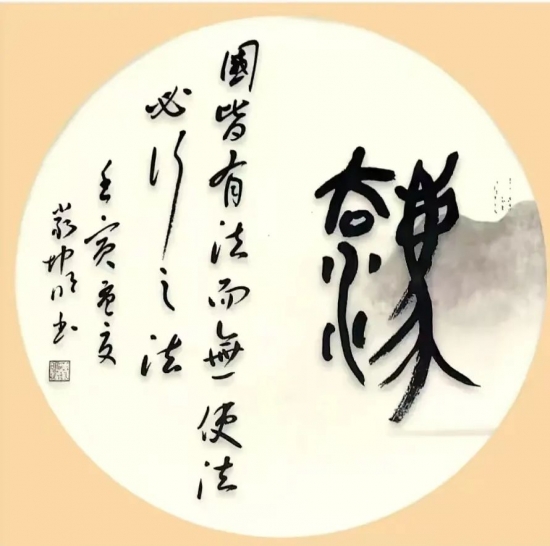 灋
國皆有法而無使法
必行之法
壬寅
坤明書